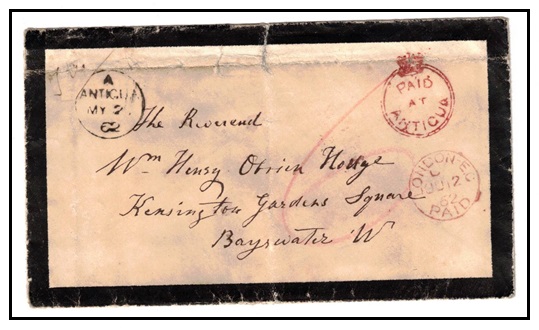 A
ANTIGUA
MY 2
62
PAID
AT
ANTIGUA
The Reverend
Wm Henry Obrien Hodge
Kensington Gardens Square
Bayswater W
LONDON EC
62
PAID